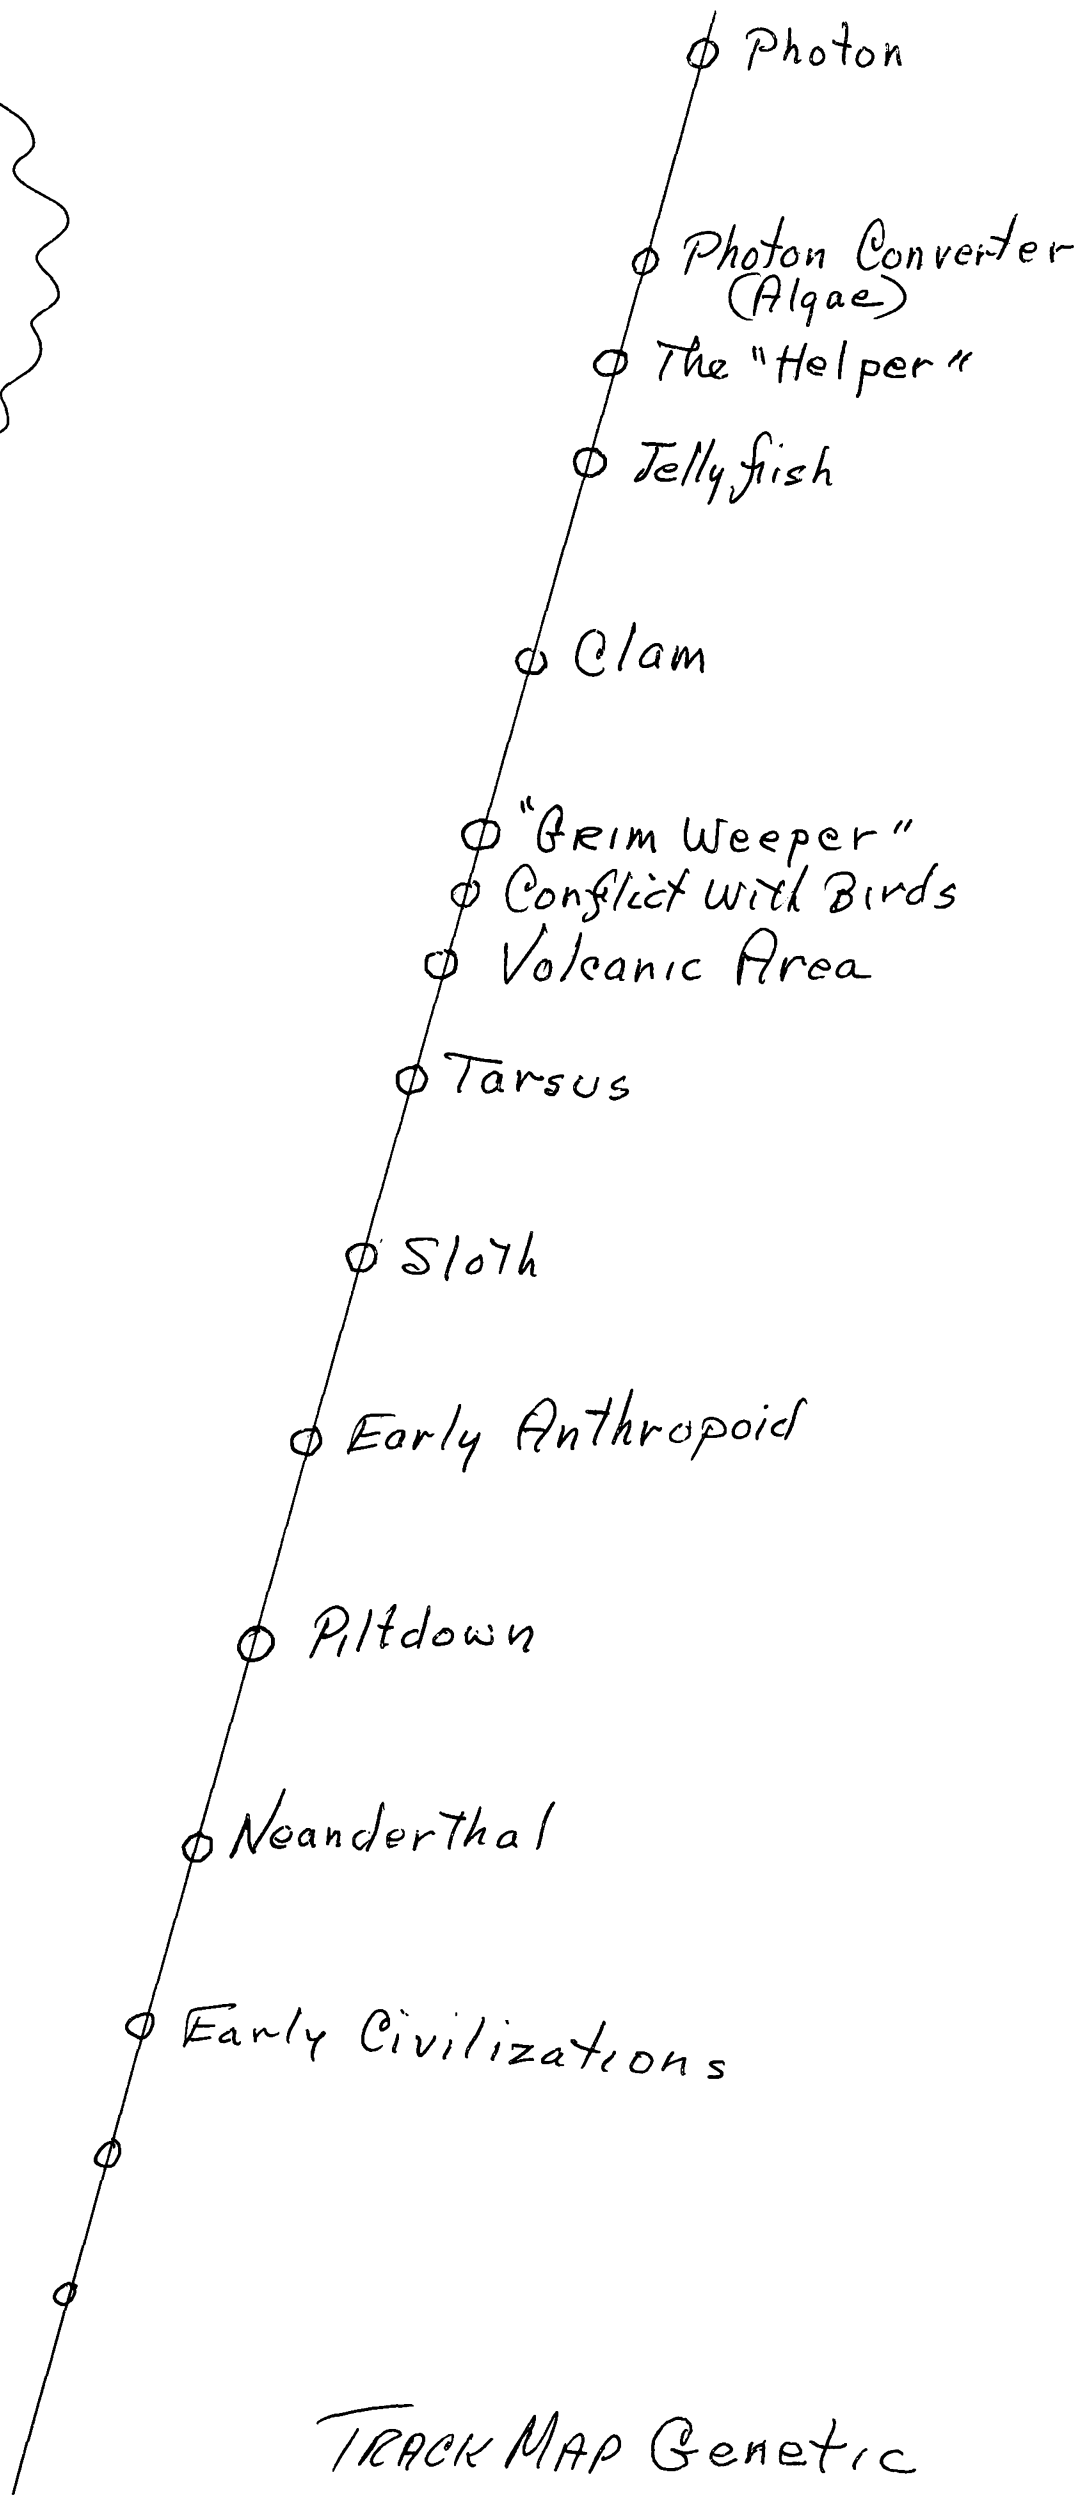 Photon
Photon Converter
(Algae)
The "Helper"
Jellyfish
Clam
"Grim Weeper"
Conflict with Birds
Volcanic Area
Tarsus
Sloth
Early Anthropoid
Piltdown
Neanderthal
Early Civilizations
TRACK MAP Genetic